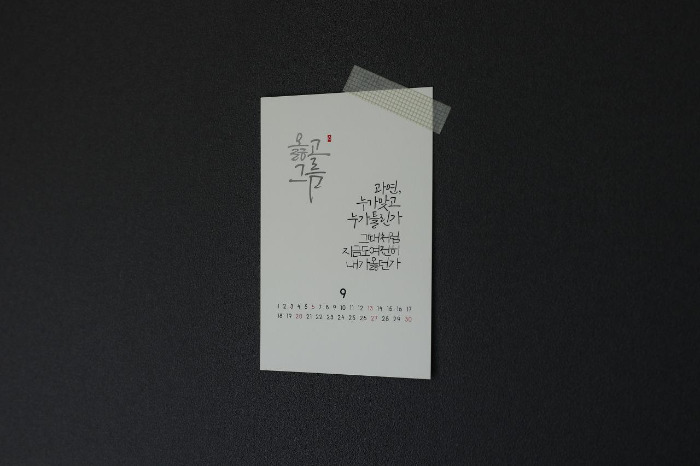 옳고
그름
과연,
누가맞고
누가틀린가
그때처럼
지금도여전히
내가옳던가
9
1 2 3 4 5 6 7 8 9 10 11 12 13 14 15 16 17
18 19 20 21 22 23 24 25 26 27 28 29 30